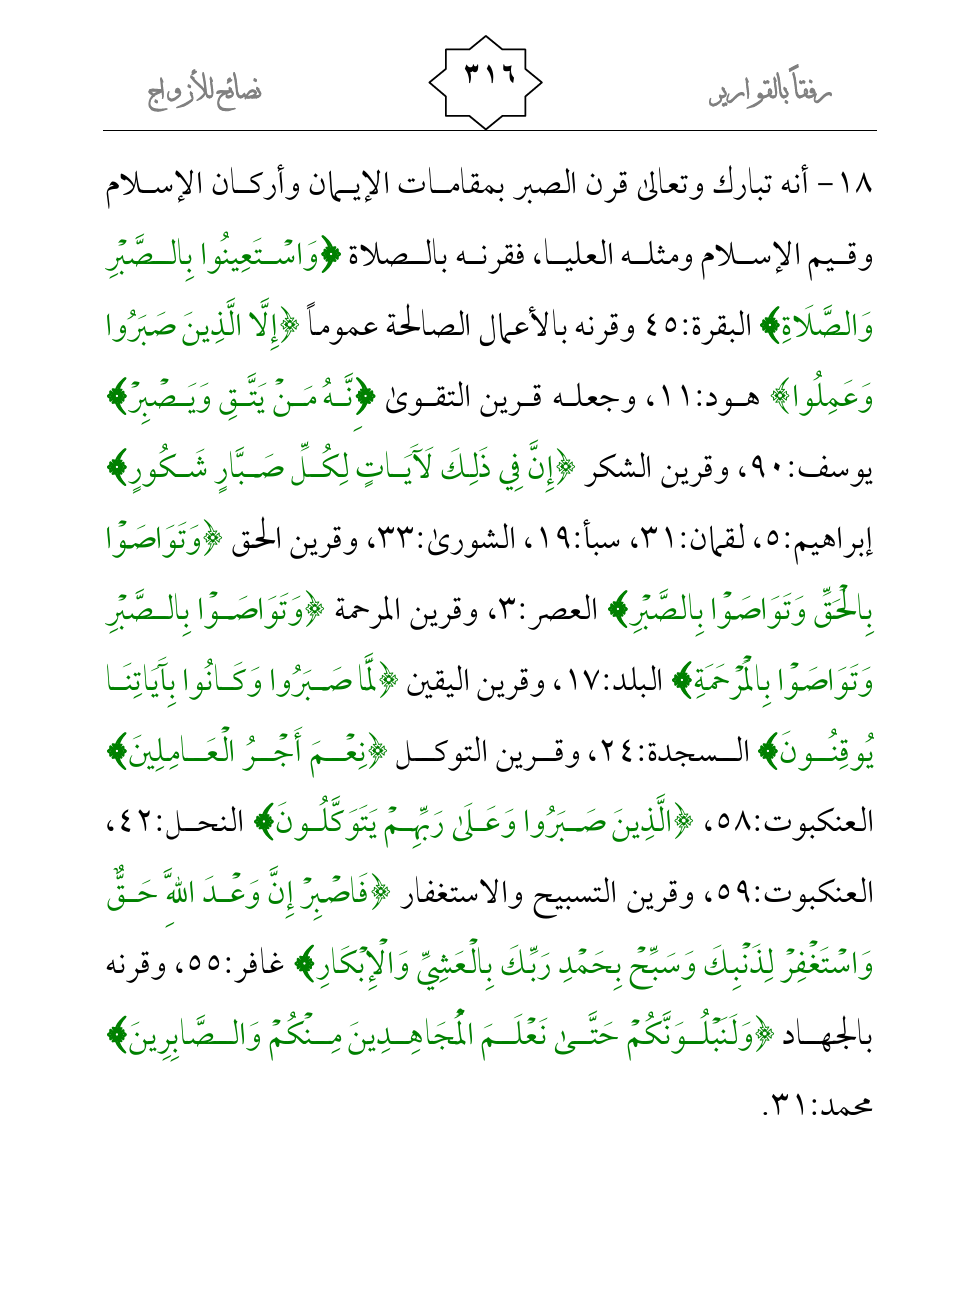 رفقاً بالقوارير
٣١٦
نصائح للأزواج
١٨- أنه تبارك وتعالى قرن الصبر بمقامات الإيمان وأركان الإسلام
وقيم الإسلام ومثله العليا، فقرنه بالصلاة ﴿وَاسْتَعِينُوا بِالصَّبْرِ
وَالصَّلَاةِ﴾ البقرة:٤٥ وقرنه بالأعمال الصالحة عموماً ﴿إِلَّا الَّذِينَ صَبَرُوا
وَعَمِلُوا﴾ هود:١١، وجعله قرين التقوى ﴿نَّهُ مَنْ يَتَّقِ وَيَصْبِرْ﴾
يوسف:٩٠، وقرين الشكر ﴿إِنَّ فِي ذَلِكَ لَآَيَاتٍ لِكُلِّ صَبَّارٍ شَكُورٍ﴾
إبراهيم:٥، لقمان:٣١، سبأ:١٩، الشورى:٣٣، وقرين الحق ﴿وَتَوَاصَوْا
بِالْحَقِّ وَتَوَاصَوْا بِالصَّبْرِ﴾ العصر:٣، وقرين المرحمة ﴿وَتَوَاصَوْا بِالصَّبْرِ
وَتَوَاصَوْا بِالْمَرْحَمَةِ﴾ البلد:١٧، وقرين اليقين ﴿لَمَّا صَبَرُوا وَكَانُوا بِآَيَاتِنَا
يُوقِنُونَ﴾ السجدة:٢٤، وقرين التوكل ﴿نِعْمَ أَجْرُ الْعَامِلِينَ﴾
العنكبوت:٥٨، ﴿الَّذِينَ صَبَرُوا وَعَلَى رَبِّهِمْ يَتَوَكَّلُونَ﴾ النحل:٤٢،
العنكبوت:٥٩، وقرين التسبيح والاستغفار ﴿فَاصْبِرْ إِنَّ وَعْدَ اللَّهِ حَقٌّ
وَاسْتَغْفِرْ لِذَنْبِكَ وَسَبِّحْ بِحَمْدِ رَبِّكَ بِالْعَشِيِّ وَالْإِبْكَارِ﴾ غافر:٥٥، وقرنه
بالجهاد ﴿وَلَنَبْلُوَنَّكُمْ حَتَّى نَعْلَمَ الْمُجَاهِدِينَ مِنْكُمْ وَالصَّابِرِينَ﴾
محمد:٣١.